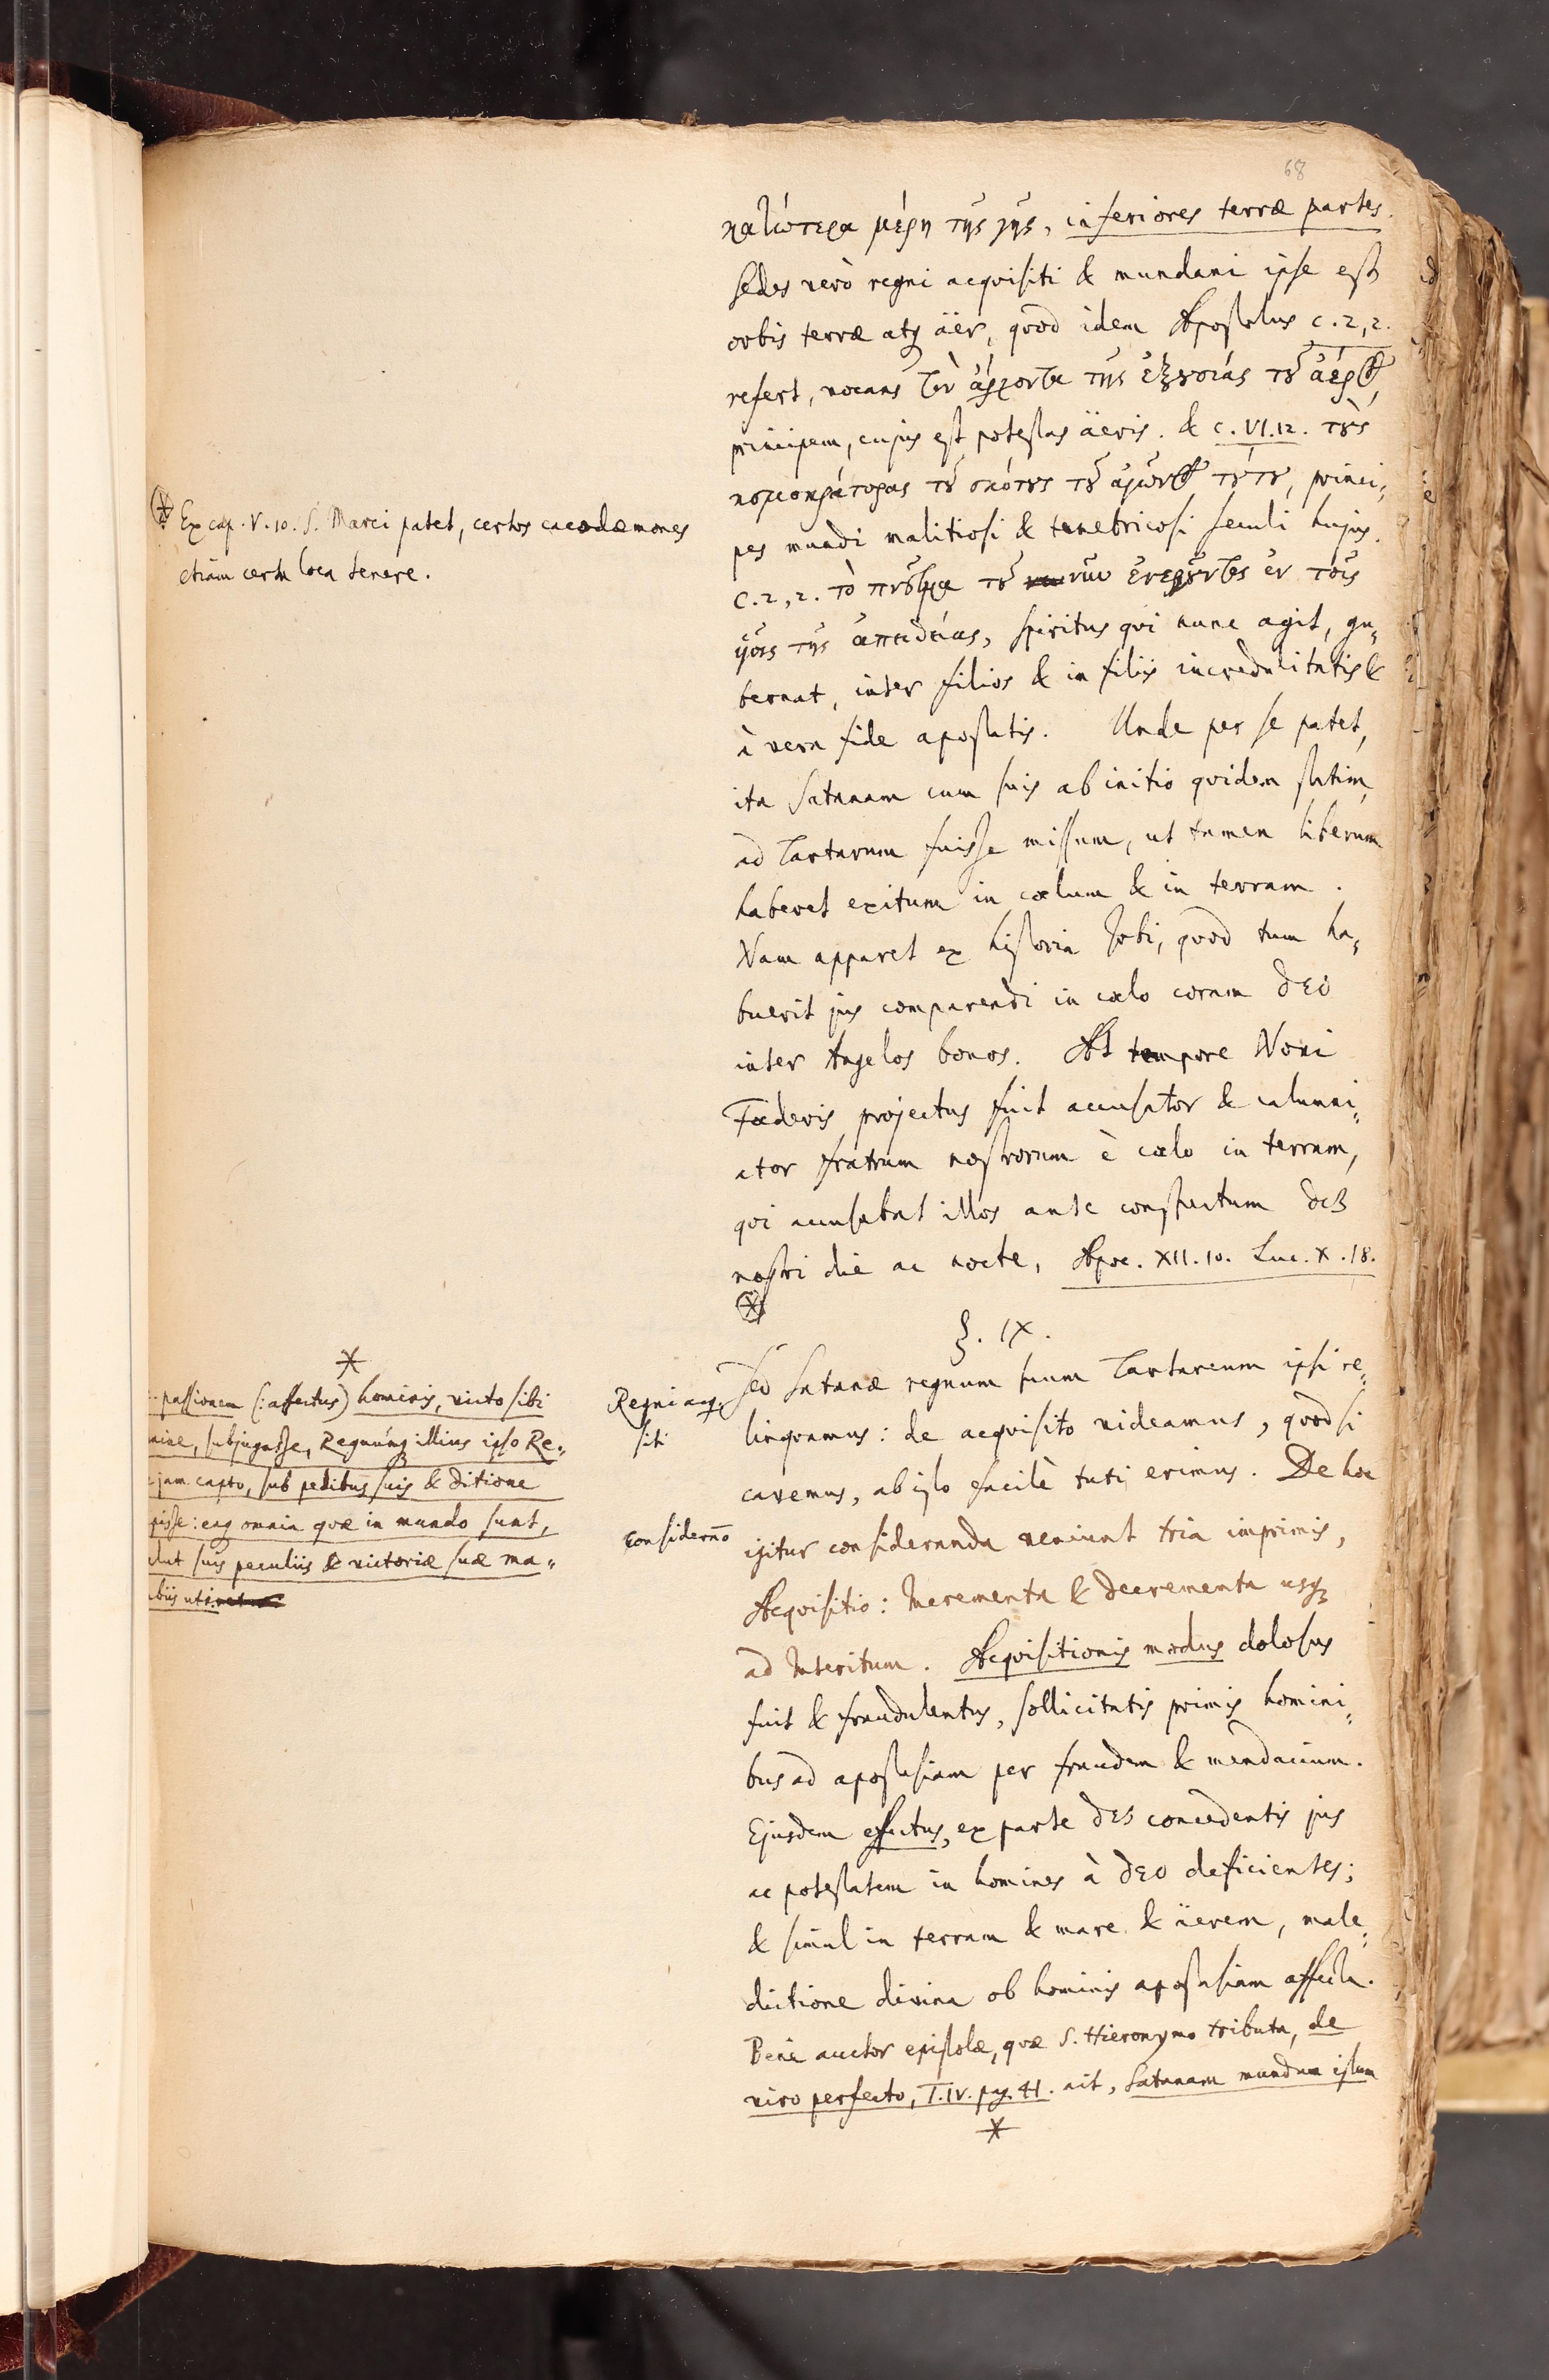 68
κατώτερα μέρη τῆς γῆς, inferiores terræ partes.
Sedes verò regni acquisiti & mundani ipse est
orbis terræ atq; äër, quod idem Apostolus c. 2, 2.
refert, vocans τὸν ἄρχοντα τῆς ἐξȣσίας τȣ͂ ἀέρος,
principem, cujus est potestas äeris. & c. VI. 12. τȣ̀ς
κοσμοκράτορας τȣ͂ σκότȣς τȣ͂ αἰῶνος τȣ́τȣ, princi-
pes mundi malitiosi & tenebricosi seculi hujus.
c. 2, 2. τὸ πνεῦμα τȣ͂ νῦν ἐνεργȣ͂ντος ἐν τοῖς
ὑιοῖς τῆς ἀπειθείας, spiritus qui nunc agit, gu-
bernat, inter filios & in filiis incredulitatis &
à vera fide apostatis. Unde per se patet,
ita Satanam cum suis ab initio quidem statim
ad Tartarum fuisse missum, ut tamen liberum
haberet exitum in cœlum & in terram.
Nam apparet ex historia Jobi, quod tum ha-
buerit jus comparendi in cœlo coram DEO
inter Angelos bonos. At tempore Novi
Fœderis projectus fuit accusator & calumni-
ator fratrum nostrorum è cœlo in terram,
qui accusabat illos ante conspectum DEI
nostri die ac nocte, Apoc. XII. 10. Luc. X. 18.
⊛
⊛ Ex cap. V. 10. S. Marci patet, certos cacodæmones
etiam certa loca tenere.
§. IX.
Regni acq
siti
Sed Satanæ regnum suum Tartareum ipsi re-
linquamus: de acquisito videamus, quod si
cavemus, ab isto facilè tuti erimus. De hoc
considerāo
igitur consideranda veniunt tria imprimis,
Acquisitio: Incrementa & Decrementa usq;
ad Interitum. Acquisitionis modus dolosus
fuit & fraudulentus, sollicitatis primis homini-
bus ad apostasiam per fraudem & mendacium.
Ejusdem effectus, ex parte DEI concedentis jus
ac potestatem in homines à DEO deficientes;
& simul in terram & mare & äerem, male-
dictione divina ob hominis apostasiam affecta.
Benè auctor epistolæ, quæ S. Hieronymo tributa, de
viro perfecto, T. IV. pag. 41. ait, Satanam mundum istum
*
*
passionem (: affectus) hominis, victo sibi
mine, subjugasse, Regnumq; illius ipso Re-
jam capto, sub pedibus suis & ditione
pisse: eaq; omnia quæ in mundo sunt,
lut suis peculiis & victoriæ suæ ma-
ubiis uti